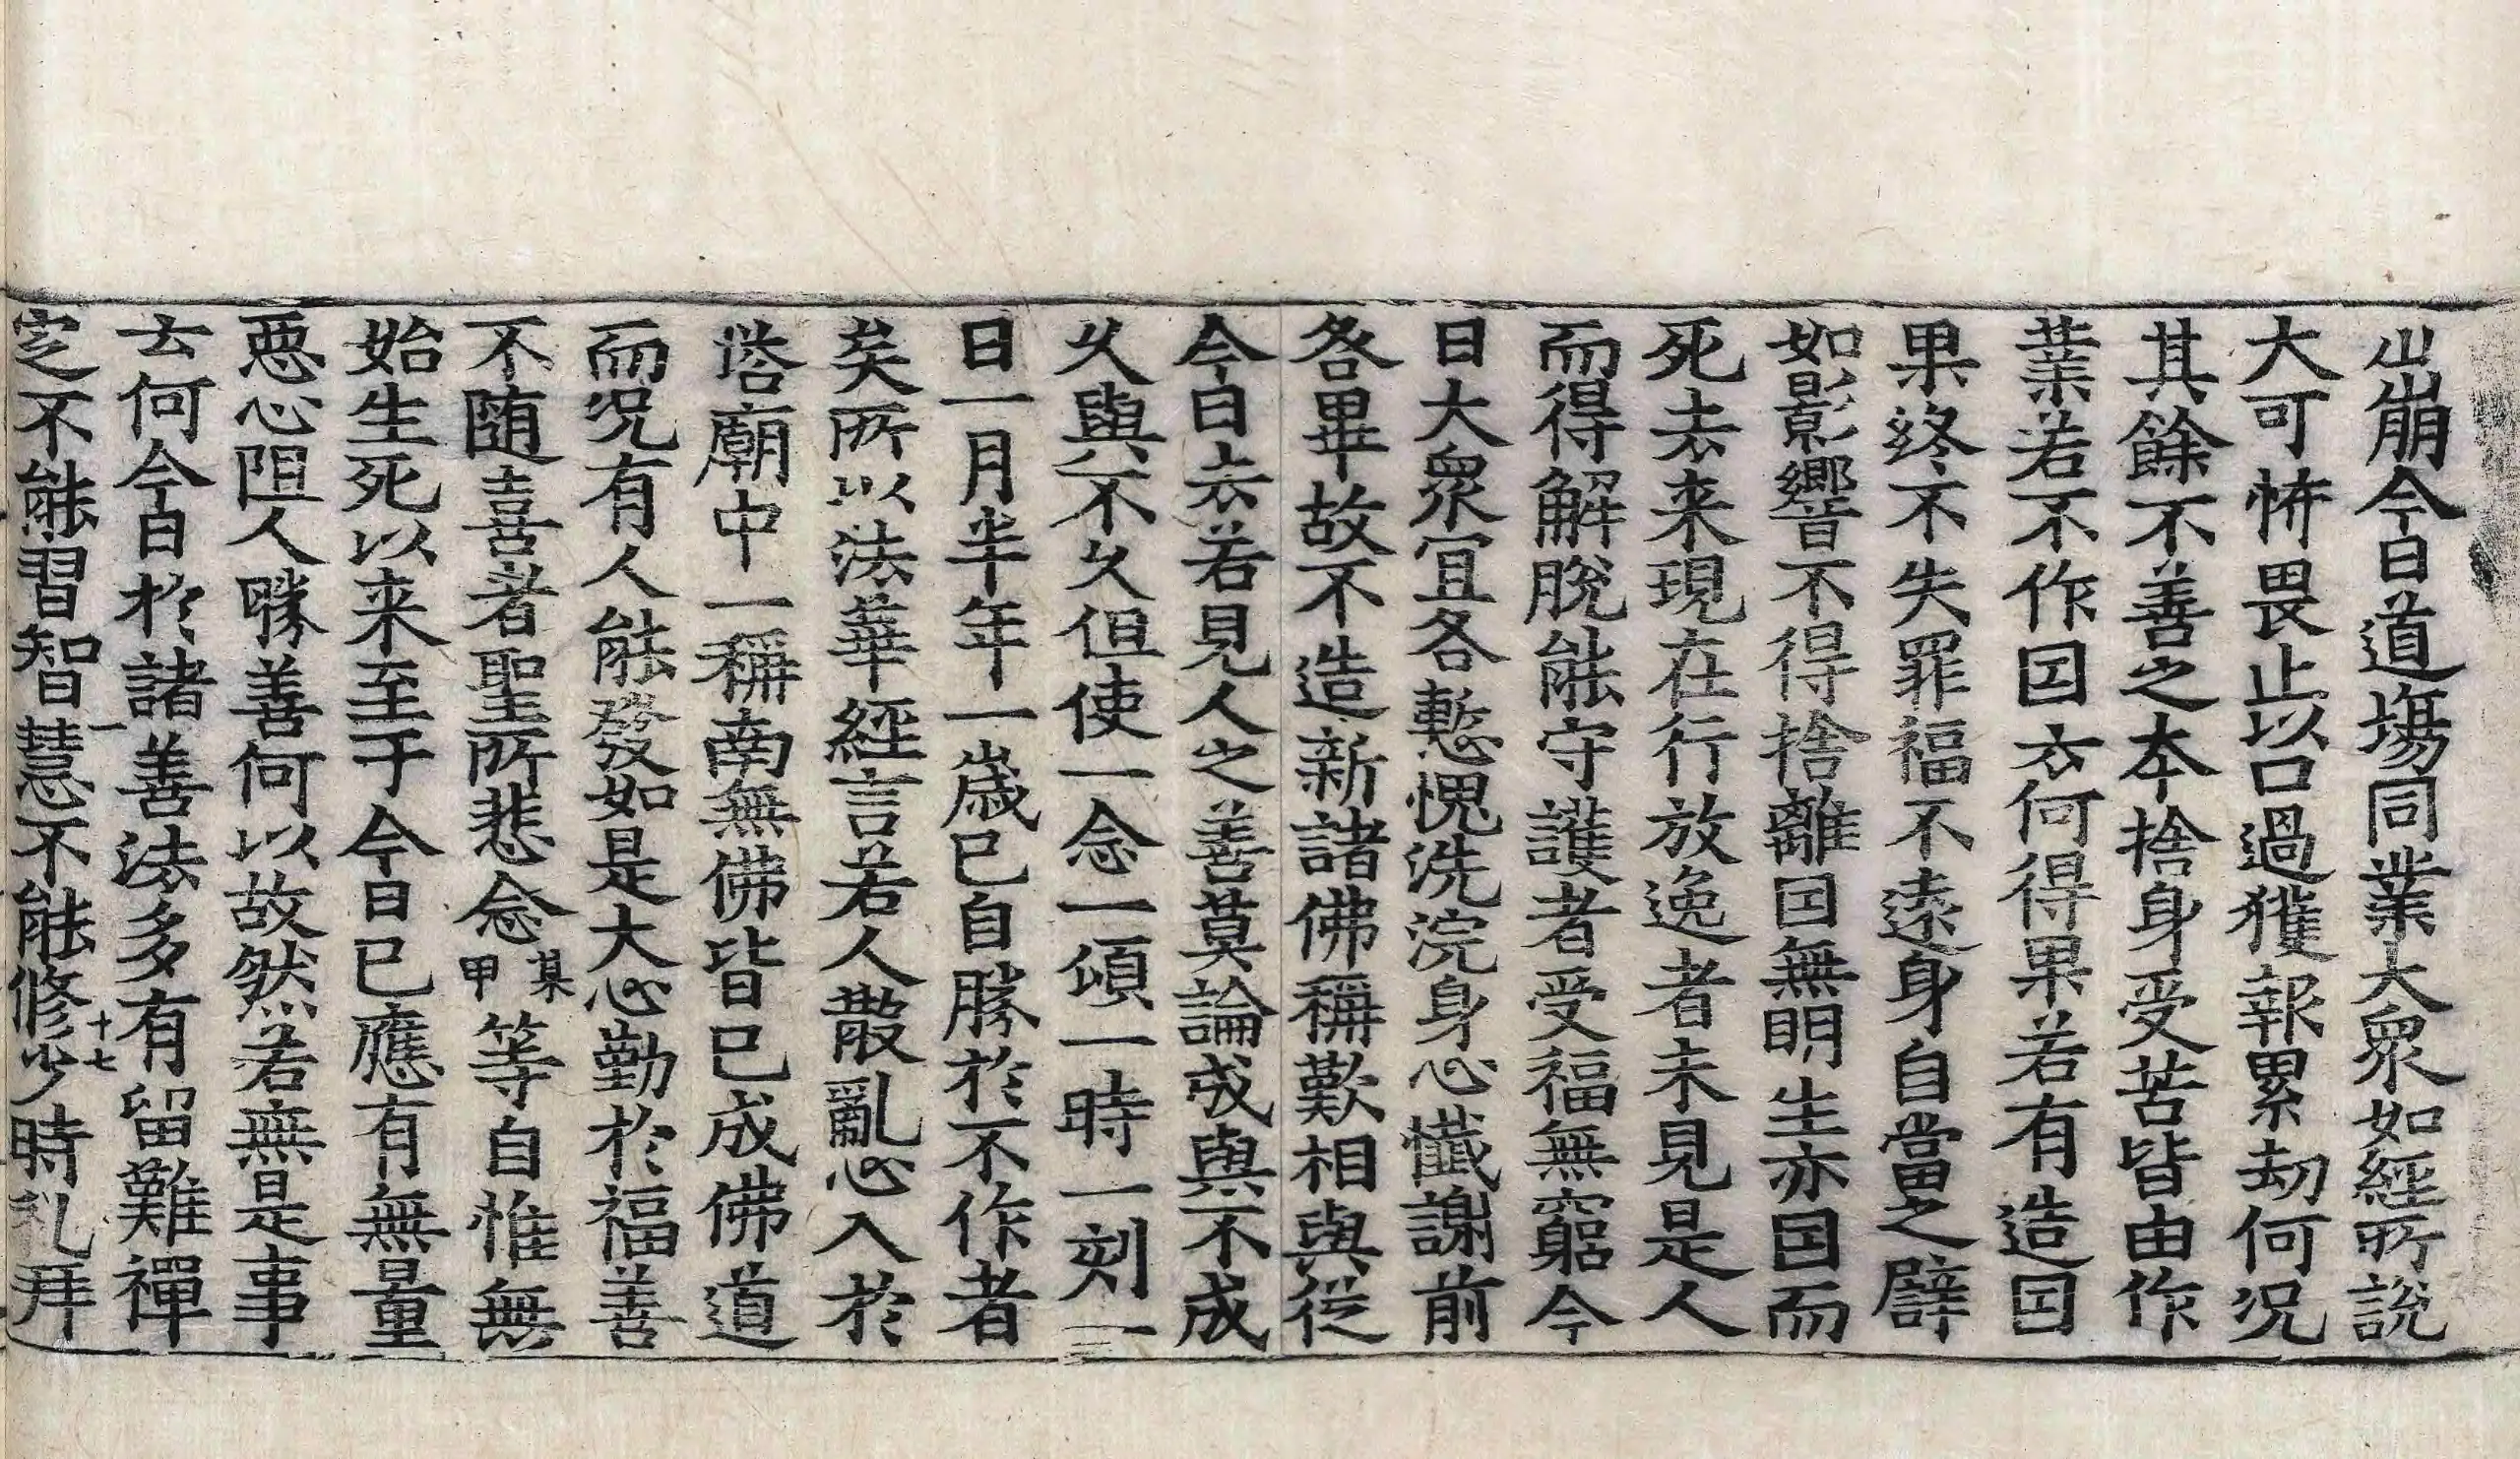 山崩今日道場同業大衆如經所說
大可怖畏止以口過獲報累劫何況
其餘不善之本捨身受苦皆由作
業若不作因云何得果若有造因
果終不失罪福不遠身自當之譬
如影響不得捨離因無明生亦因而
死去来現在行放逸者未見是人
而得解脫能守護者受福無窮今
日大衆宜各慙愧洗浣身心懺謝前
咎畢故不造新諸佛稱歎相與從
今日去若見人之善莫論成與不成
久與不久但使一念一頃一時一刻一
日一月半年一歲已自勝於不作者
矣所以法華經言若人散亂心入於
塔廟中一稱南無佛皆已成佛道
而況有人能發如是大心勤於福善
不随喜者聖所悲念某甲等自惟無
始生死以来至于今日已應有無量
惡心阻人勝善何以故然若無是事
云何今日於諸善法多有留難禪
定不能習智慧不能修少時礼拜
一 十七